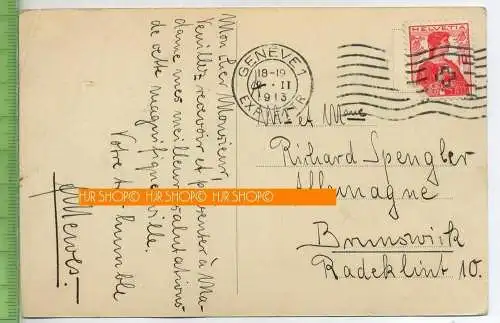 Mon cher Monsieur,
Veuillez recevoir et présenter à Ma-
dame mes meilleures salutations
de cette magnifique ville.
Votre humble
GENÈVE 1
18-19
II
1913
HELVETIA
Mr et Mme
Richard Spengler
Allemagne
Brunswick
Radeklint 10.
HJR SHOP© HJR SHOP© HJR SHOP©